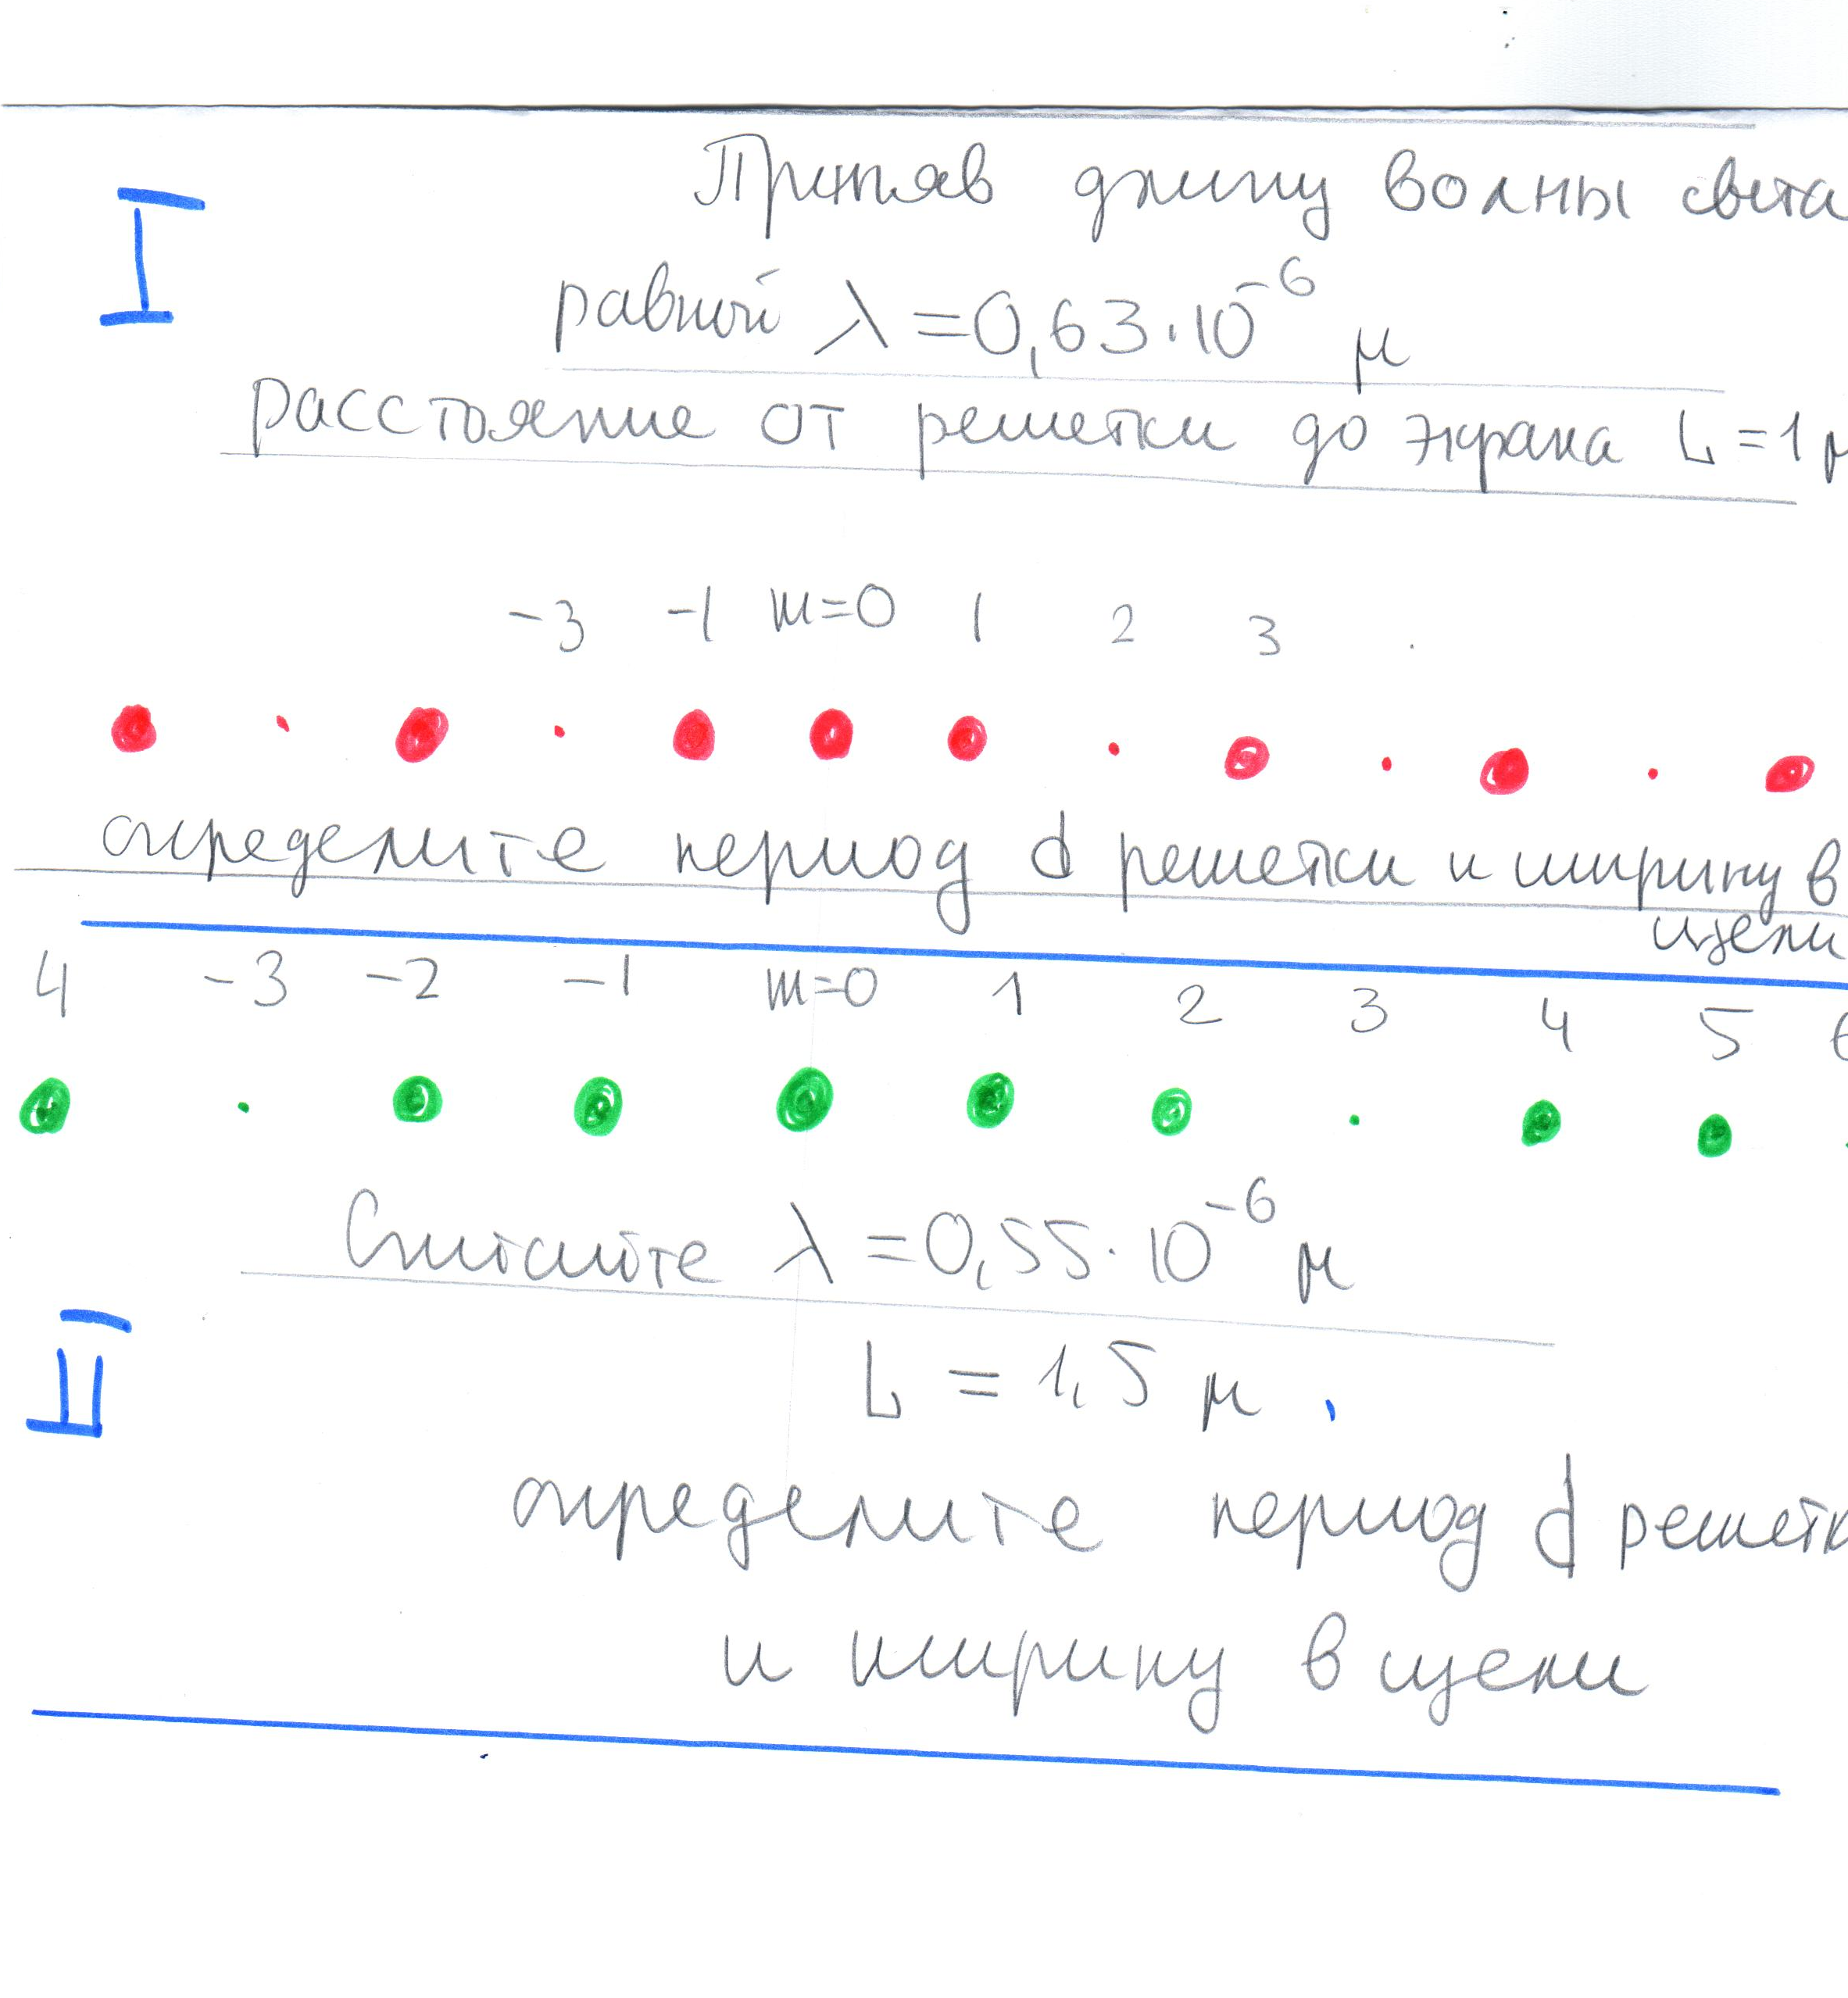 I
Приняв длину волны света
равной λ = 0,63·10⁻⁶ м
расстояние от решетки до экрана L = 1 м
-3 -1 m=0 1 2 3
определите период d решетки и ширину b
щели
4 -3 -2 -1 m=0 1 2 3 4 5 6
Считайте λ = 0,55·10⁻⁶ м
II
L = 1,5 м,
определите период d решетки
и ширину b щели